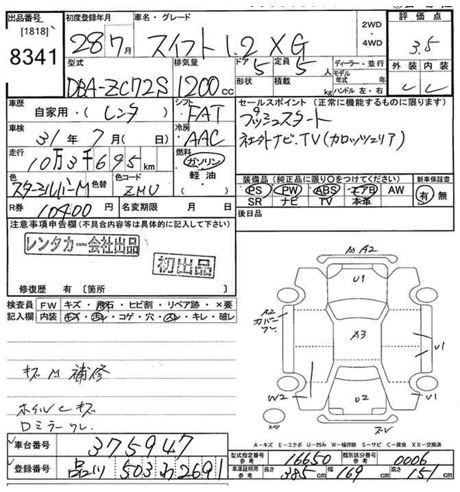 出品番号 [1818] 8341
初度登録年月 28年7月
車名・グレード スイフト 1.2 XG
2WD
4WD
評価点 3.5
外装 内装 C C
型式 DBA-ZC72S
排気量 1200cc
ドア 5
定員 5人
形状
積載 kg
ディーラー・並行
モデル年式 年
ハンドル 左・右
車歴 自家用・レンタ
シフト FAT
車検 31年7月(日)
冷房 AAC
走行 10万3千695km
燃料 ガソリン 軽油
色 スターシルバーM
色替
色コード ZMU
R券 10400
名変期限 月 日
セールスポイント (正常に機能するものに限ります)
プッシュスタート
社外ナビ.TV(カロッツェリア)
装備品(純正品に限り○をつけてください)
PS PW ABS エアB AW
SR ナビ TV 本革
新車保証書
有 無
後日品
注意事項申告欄(不具合内容等は具体的に記入して下さい)
レンタカー会社出品
初出品
修復歴 有 [箇所
検査員記入欄
FW キズ・飛石・ヒビ割・リペア跡・×要
内装 キズ・汚レ・コゲ・穴・スレ・キレ・破し
キズM 補修
ホイルCキズ
Dミラースレ
A2
U1
A2
カバーワレ
A3
U1
W2
U2
U1
A-キズ E-エクボ U-凹み W-補修跡 S-サビ C-腐食 XX-交換済
車台番号 375947
登録番号 品川 503 わ 2691
型式指定番号 参考 16650
類別区分番号 参考 0006
車庫証明サイズ(参考) 長さ 385cm 幅 169cm 高さ 151cm